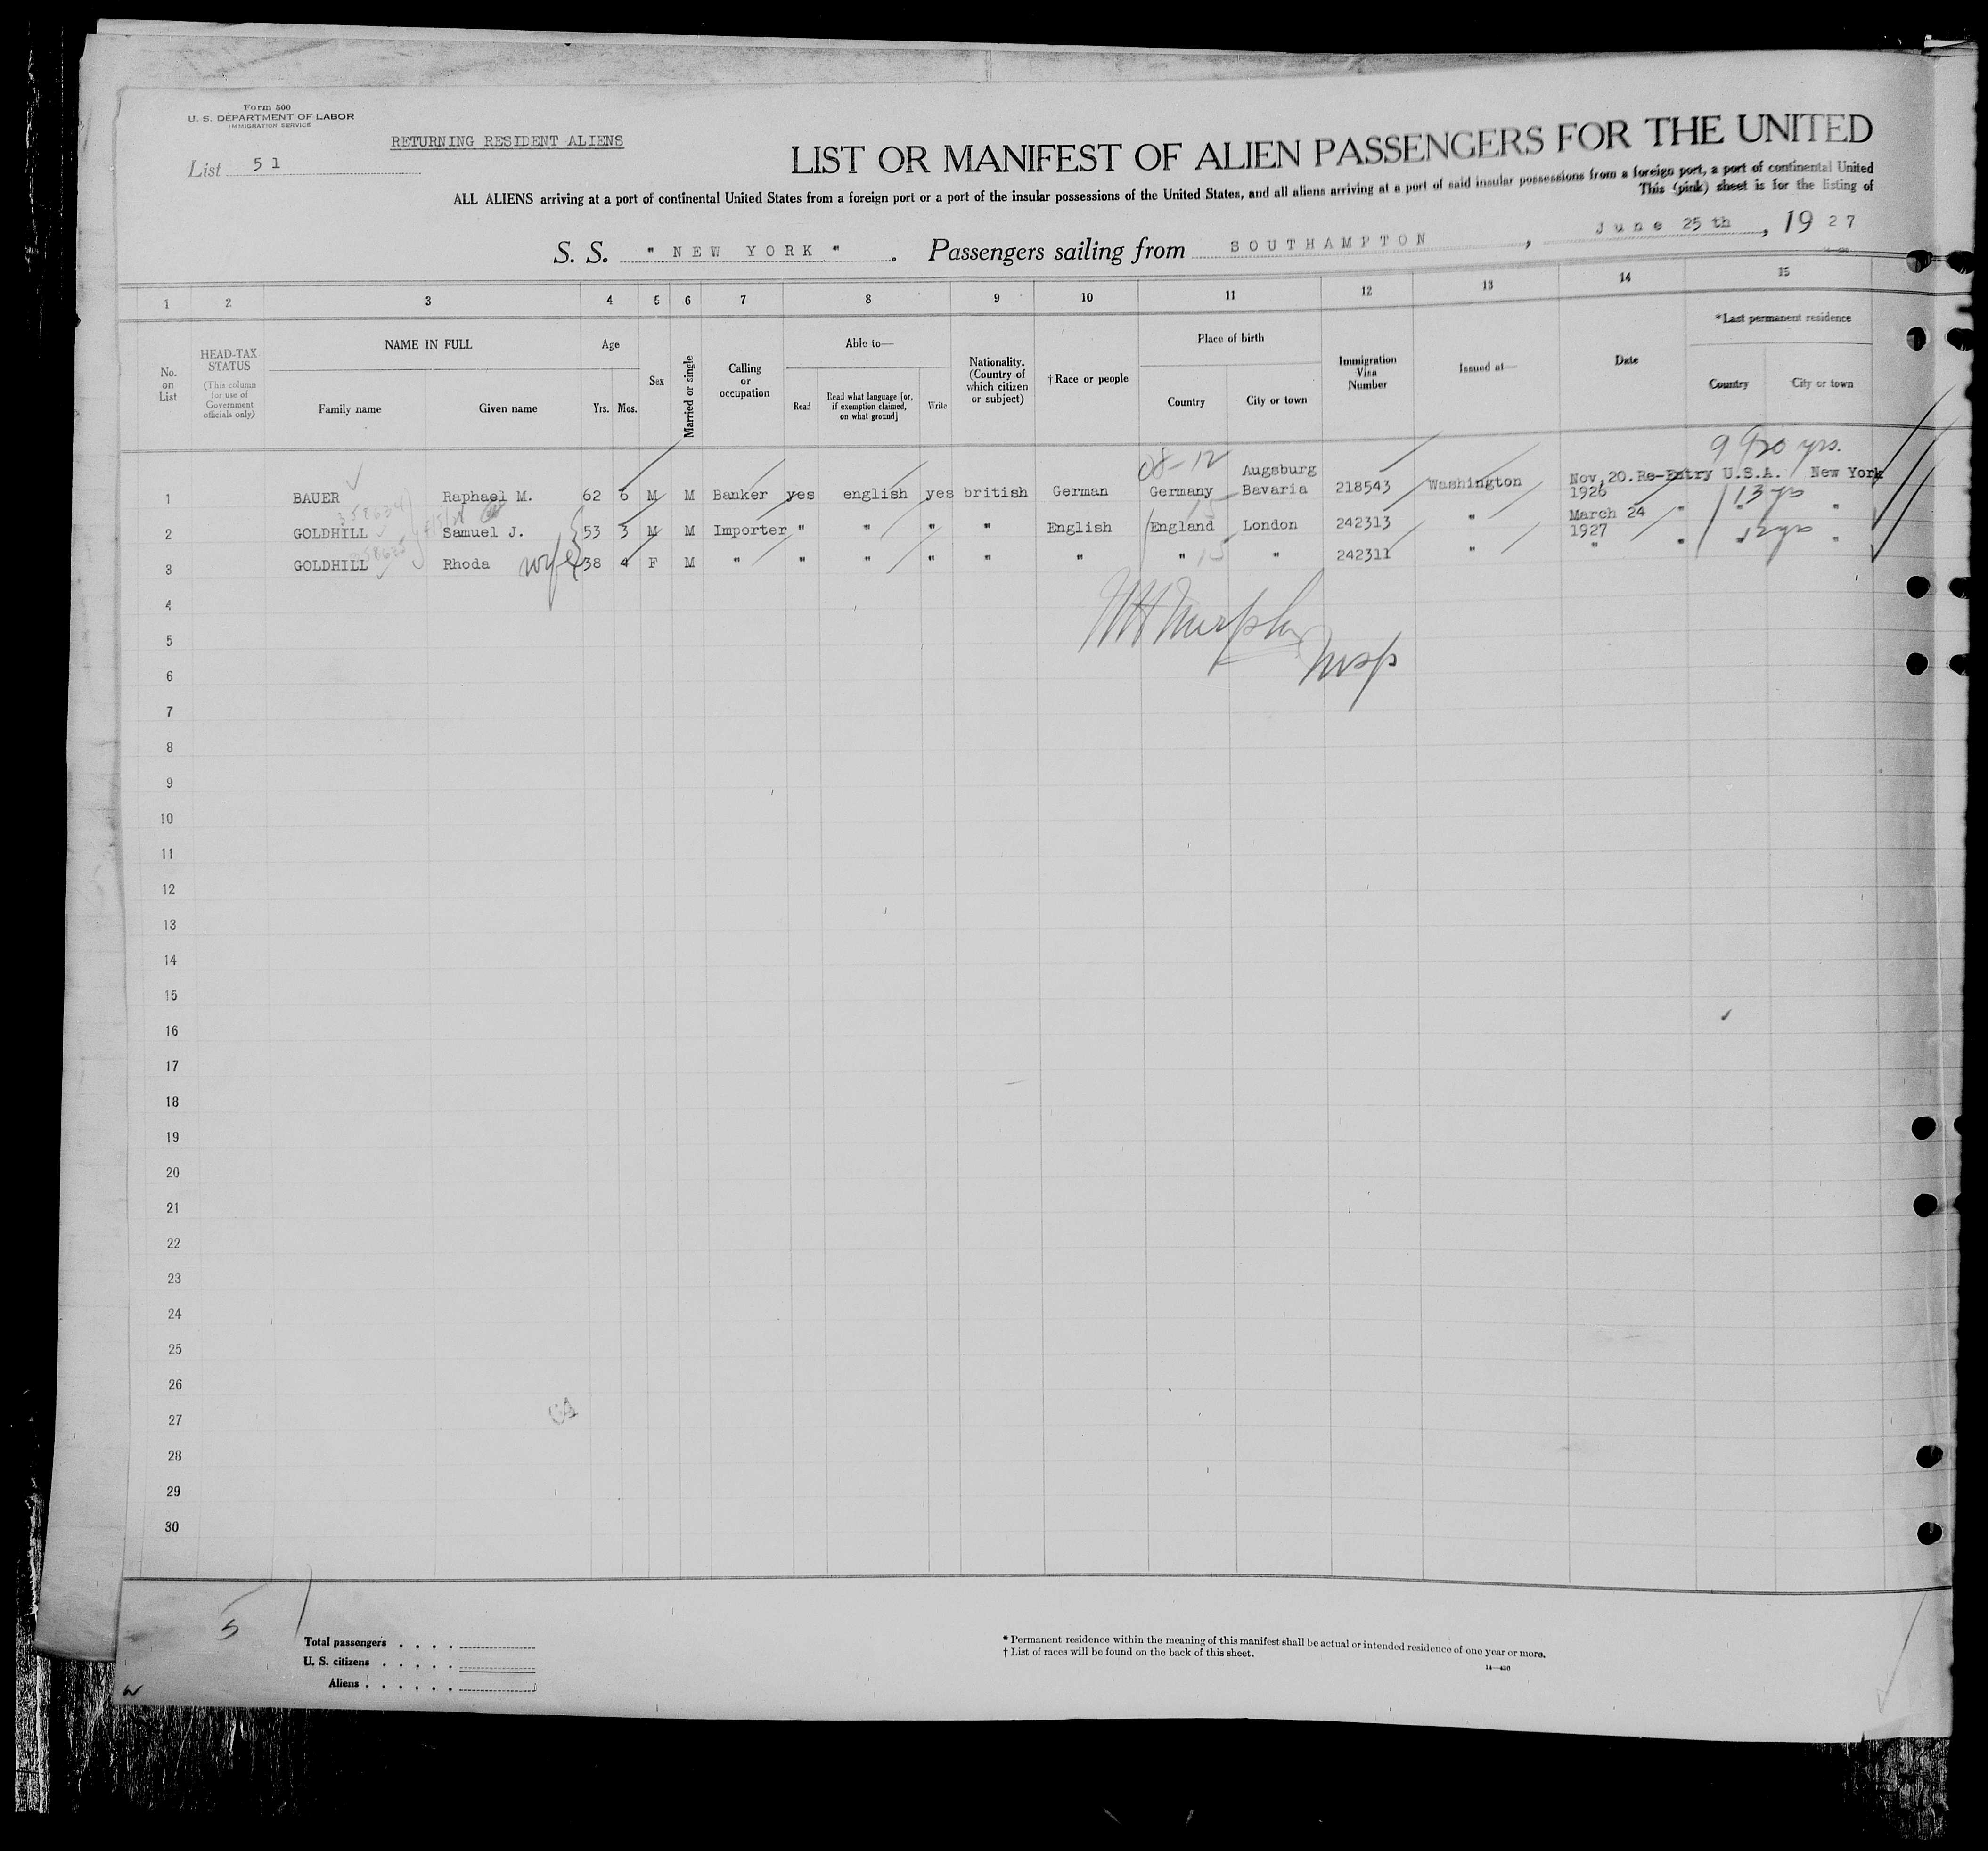 Form 500
U. S. DEPARTMENT OF LABOR
IMMIGRATION SERVICE
RETURNING RESIDENT ALIENS
List 51
LIST OR MANIFEST OF ALIEN PASSENGERS FOR THE UNITED
ALL ALIENS arriving at a port of continental United States from a foreign port or a port of the insular possessions of the United States, and all aliens arriving at a port of said insular possessions from a foreign port, a port of continental United
This (pink) sheet is for the listing of
S. S. " NEW YORK ". Passengers sailing from SOUTHAMPTON, June 25 th, 19 27
1 2 3 4 5 6 7 8 9 10 11 12 13 14 15
No. on List
HEAD-TAX STATUS
(This column for use of Government officials only)
NAME IN FULL
Family name Given name
Age
Yrs. Mos.
Sex
Married or single
Calling or occupation
Able to—
Read
Read what language [or, if exemption claimed, on what ground]
Write
Nationality. (Country of which citizen or subject)
† Race or people
Place of birth
Country City or town
Immigration Visa Number
Issued at—
Date
*Last permanent residence
Country City or town
08-12 9 9/20 yrs.
1 BAUER Raphael M. 62 6 M M Banker yes english yes british German Germany Augsburg Bavaria 218543 Washington Nov, 20. 1926 Re-Entry U.S.A. New York
358634 13 yrs
2 GOLDHILL Samuel J. 53 3 M M Importer " " " " English England London 242313 " March 24 1927 " " "
12 yrs
3 GOLDHILL Rhoda wife 38 4 F M " " " " " " " " 242311 " " " "
4
WH Murphy
5
Insp
6
7
8
9
10
11
12
13
14
15
16
17
18
19
20
21
22
23
24
25
26
27
28
29
30
5
Total passengers . . . .
U. S. citizens . . . . .
Aliens . . . . . .
* Permanent residence within the meaning of this manifest shall be actual or intended residence of one year or more.
† List of races will be found on the back of this sheet.